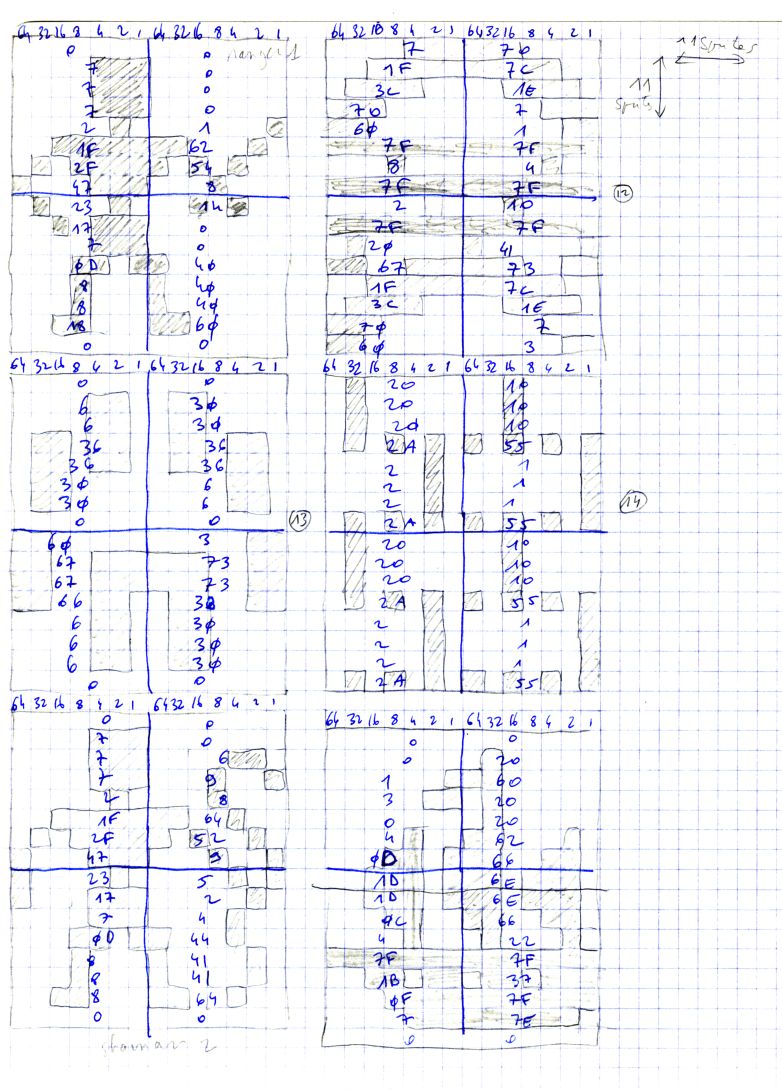 64 32 16 8 4 2 1 64 32 16 8 4 2 1
0 0
7 0
7 0
7 0
2 1
1F 62
2F 54
47 8
23 14
17 0
7 0
ϕD 4ϕ
8 4ϕ
8 4ϕ
18 6ϕ
0 0
64 32 16 8 4 2 1 64 32 16 8 4 2 1
7 70
1F 7C
3C 1E
70 7
6ϕ 1
7F 7F
8 4
7F 7F
2 10
7F 7F
2ϕ 41
67 73
1F 7C
3C 1E
7ϕ 7
6ϕ 3
11
12
64 32 16 8 4 2 1 64 32 16 8 4 2 1
0 0
6 3ϕ
6 3ϕ
36 36
36 36
3ϕ 6
3ϕ 6
0 0
6ϕ 3
67 73
67 73
66 3ϕ
6 3ϕ
6 3ϕ
6 3ϕ
0 0
13
64 32 16 8 4 2 1 64 32 16 8 4 2 1
20 10
20 10
20 10
2A 55
2 1
2 1
2 1
2A 55
20 10
20 10
20 10
2A 55
2 1
2 1
2 1
2A 55
14
64 32 16 8 4 2 1 64 32 16 8 4 2 1
0 0
7 0
7 6
7 9
2 8
1F 64
2F 52
47 9
23 5
17 2
7 4
ϕD 44
8 41
8 41
8 64
0 0
64 32 16 8 4 2 1 64 32 16 8 4 2 1
0 0
0 20
1 60
3 20
0 20
4 62
ϕD 66
1D 6E
1D 6E
ϕC 66
4 22
7F 7F
1B 37
ϕF 7F
7 7E
0 0